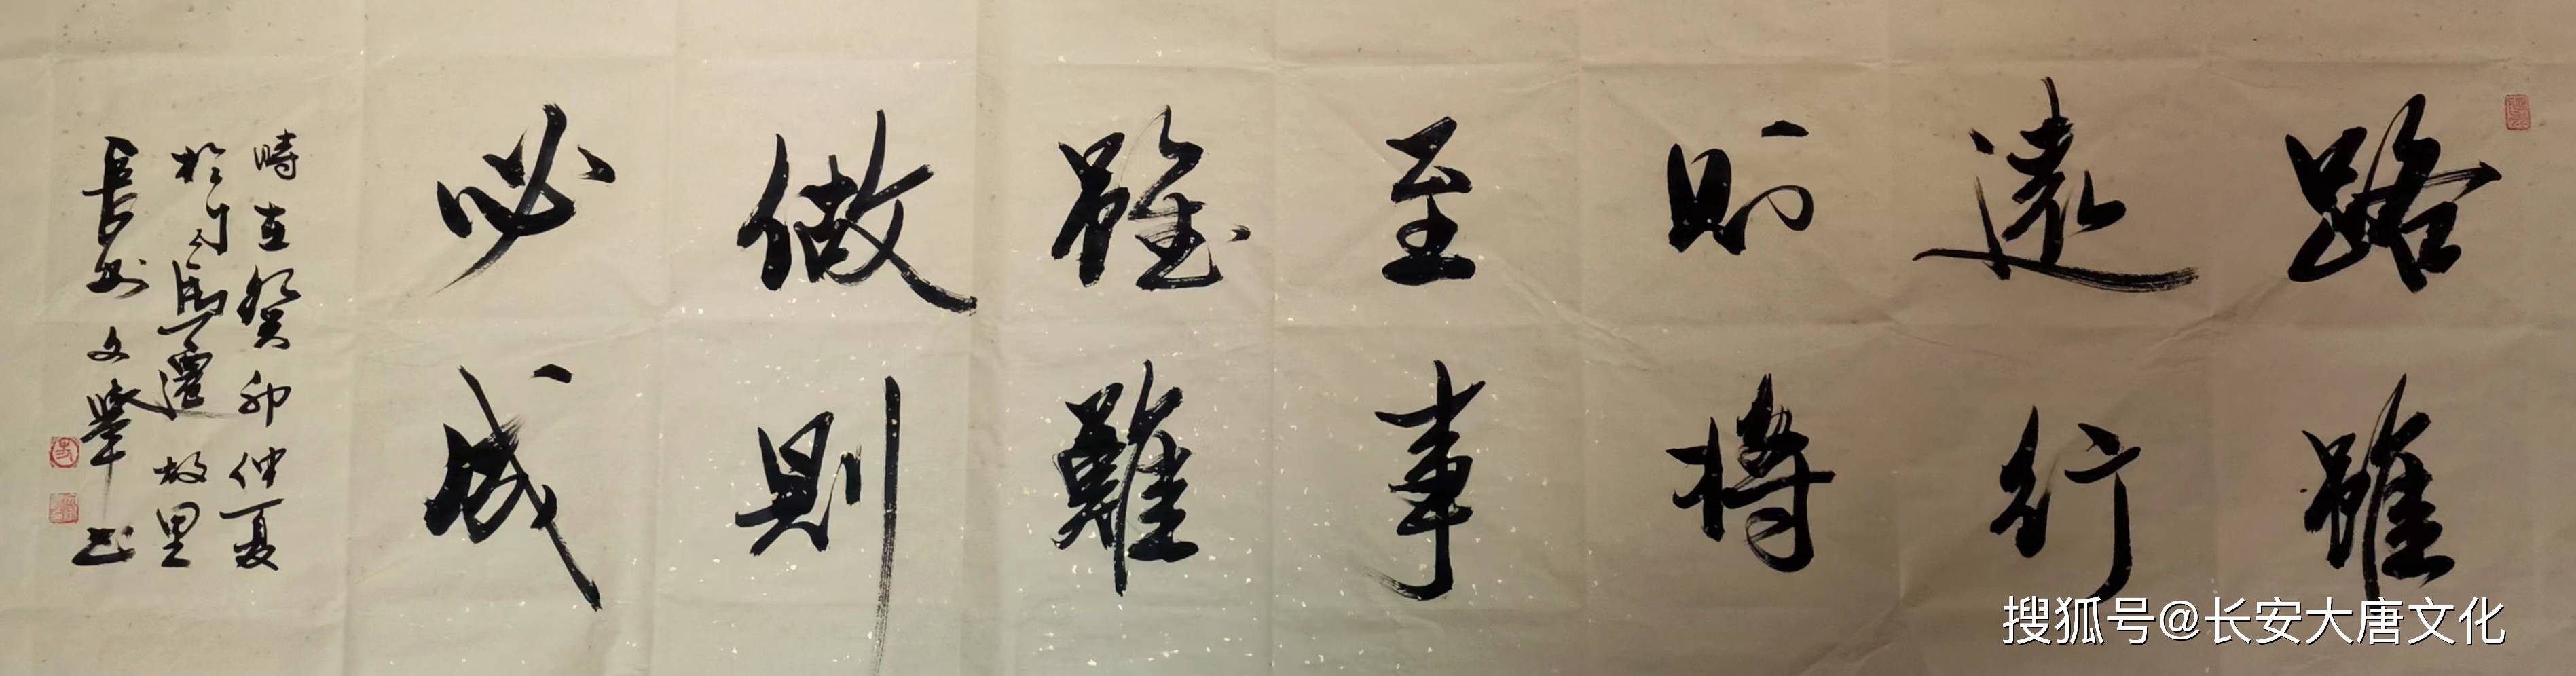 路雖
遠行
則將
至事
雖難
做則
必成
時在癸卯仲夏
於司馬遷故里
長安文舉书
搜狐号@长安大唐文化